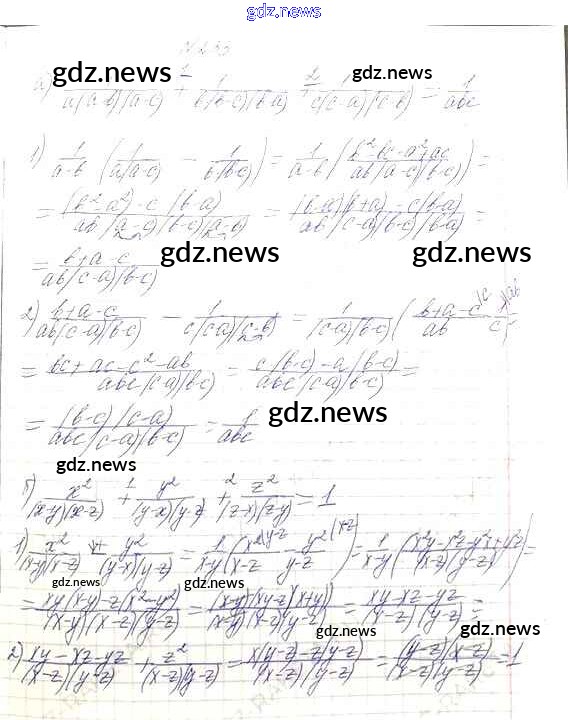 gdz.news
N 233
gdz.news
а) 1/(a(a-b)(a-c)) + 1/(b(b-c)(b-a)) + 1/(c(c-a)(c-b)) = 1/abc
1) 1/(a-b) (1/(a(a-c)) - 1/(b(b-c))) = 1/(a-b) ((b²-bc-a²+ac)/(ab(a-c)(b-c))) =
= ((b²-a²)-c(b-a))/(ab(a-c)(b-c)(a-b)) = ((b-a)(b+a)-c(b-a))/(ab(c-a)(b-c)(b-a)) =
gdz.news gdz.news
= (b+a-c)/(ab(c-a)(b-c))
2) (b+a-c)/(ab(c-a)(b-c)) - 1/(c(c-a)(c-b)) = 1/((c-a)(b-c)) ((b+a-c)/ab
= (bc+ac-c²-ab)/(abc(c-a)(b-c)) = (c(b-c)-a(b-c))/(abc(c-a)(b-c)) =
= ((b-c)(c-a))/(abc(c-a)(b-c)) = 1/abc
gdz.news
gdz.news
б) x²/((x-y)(x-z)) + y²/((y-x)(y-z)) + z²/((z-x)(z-y)) = 1
1) x²/((x-y)(x-z)) + y²/((y-x)(y-z)) = 1/(x-y) (x²/(x-z) - y²/(y-z)) = 1/(x-y) ((x²y-x²z-y²x+y²z)/((x-z)(y-z))) =
gdz.news
= (xy(x-y)-z(x²-y²))/((x-y)(x-z)(y-z)) = ((x-y)(xy-z(x+y)))/((x-y)(x-z)(y-z)) = (xy-xz-yz)/((x-z)(y-z)) =
gdz.news gdz.news
2) (xy-xz-yz)/((x-z)(y-z)) + z²/((x-z)(y-z)) = (x(y-z)-z(y-z))/((x-z)(y-z)) = ((y-z)(x-z))/((x-z)(y-z)) = 1
gdz.news